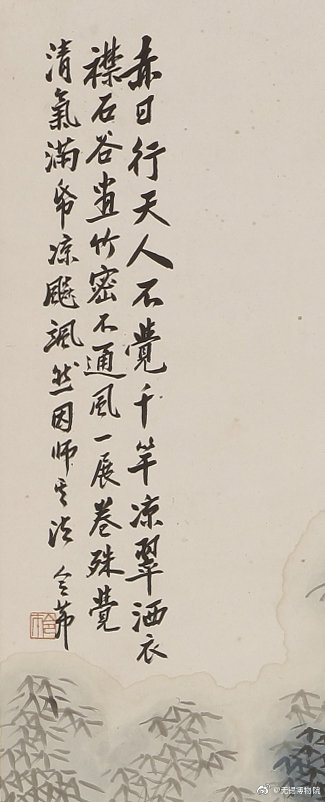 赤日行天人不覺千竿凉翠洒衣
襟石谷畫竹密不通風一展卷殊覺
清氣滿帋凉飈颯然因師其法 令茀
@无锡博物院